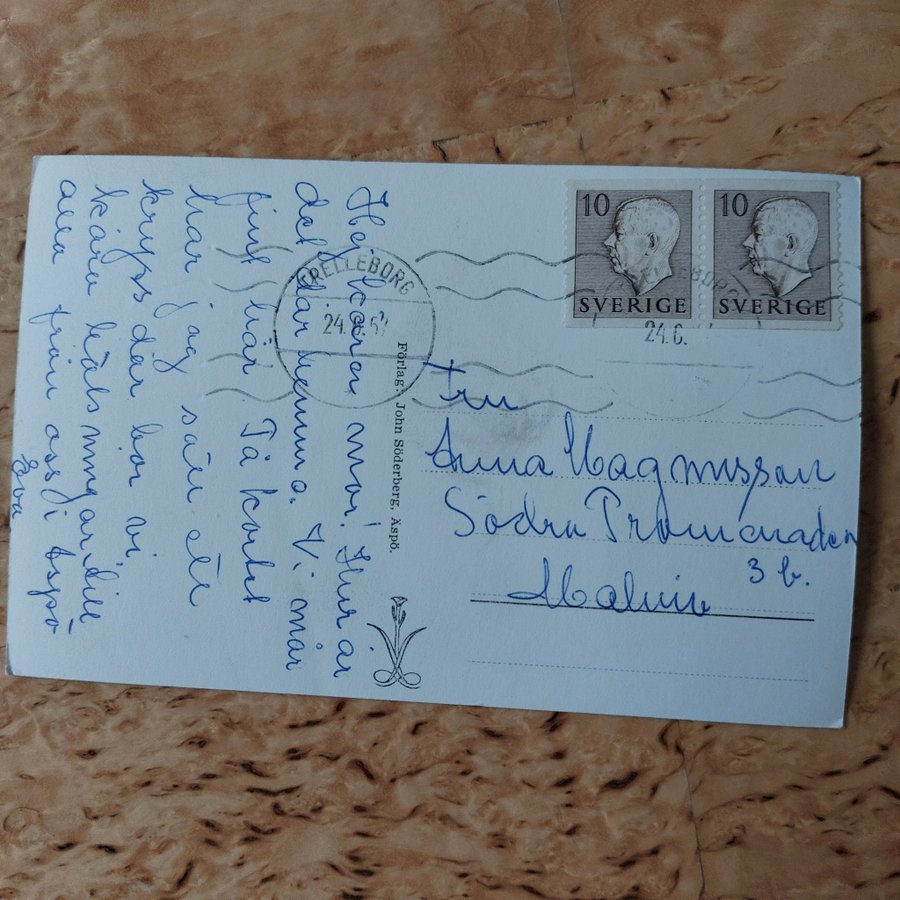 Hej kära mor! Hur är
det där hemma. Vi mår
fint här. På kortet
har jag satt ett
kryss där bor vi.
kära hälsningar till
alla från oss i Äspö
Eva
Förlag: John Söderberg, Äspö.
TRELLEBORG
24.6.5
10
SVERIGE
10
SVERIGE
TRELLEBORG
24.6.
Fru
Anna Magnusson
Södra Promenaden
3 b.
Malmö